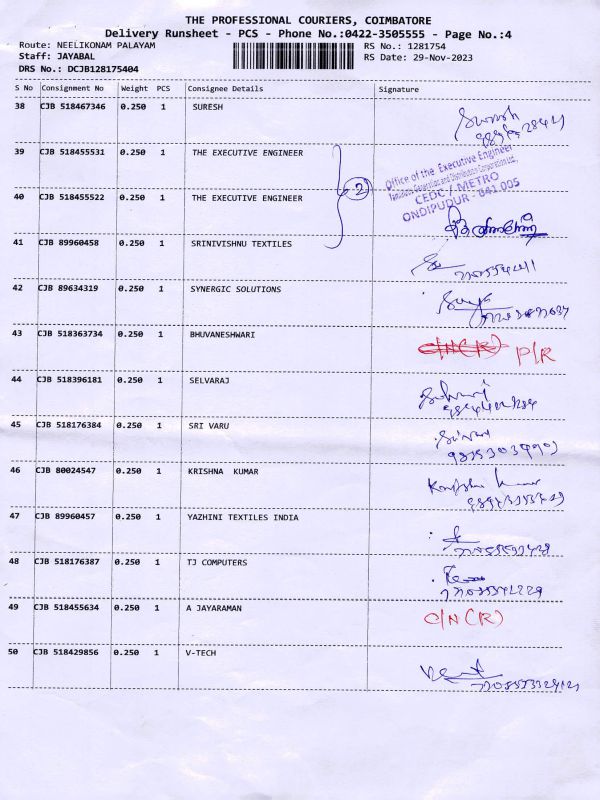 THE PROFESSIONAL COURIERS, COIMBATORE
Delivery Runsheet - PCS - Phone No.:0422-3505555 - Page No.:4
Route: NEELIKONAM PALAYAM RS No.: 1281754
Staff: JAYABAL RS Date: 29-Nov-2023
DRS No.: DCJB128175404
S No Consignment No Weight PCS Consignee Details Signature
38 CJB 518467346 0.250 1 SURESH
39 CJB 518455531 0.250 1 THE EXECUTIVE ENGINEER
2
Office of the Executive Engineer
CEDC / METRO
ONDIPUDUR - 641 005
40 CJB 518455522 0.250 1 THE EXECUTIVE ENGINEER
41 CJB 89960458 0.250 1 SRINIVISHNU TEXTILES
42 CJB 89634319 0.250 1 SYNERGIC SOLUTIONS
43 CJB 518363734 0.250 1 BHUVANESHWARI P/R
44 CJB 518396181 0.250 1 SELVARAJ
45 CJB 518176384 0.250 1 SRI VARU
46 CJB 80024547 0.250 1 KRISHNA KUMAR
47 CJB 89960457 0.250 1 YAZHINI TEXTILES INDIA
48 CJB 518176387 0.250 1 TJ COMPUTERS
49 CJB 518455634 0.250 1 A JAYARAMAN C/N (R)
50 CJB 518429856 0.250 1 V-TECH